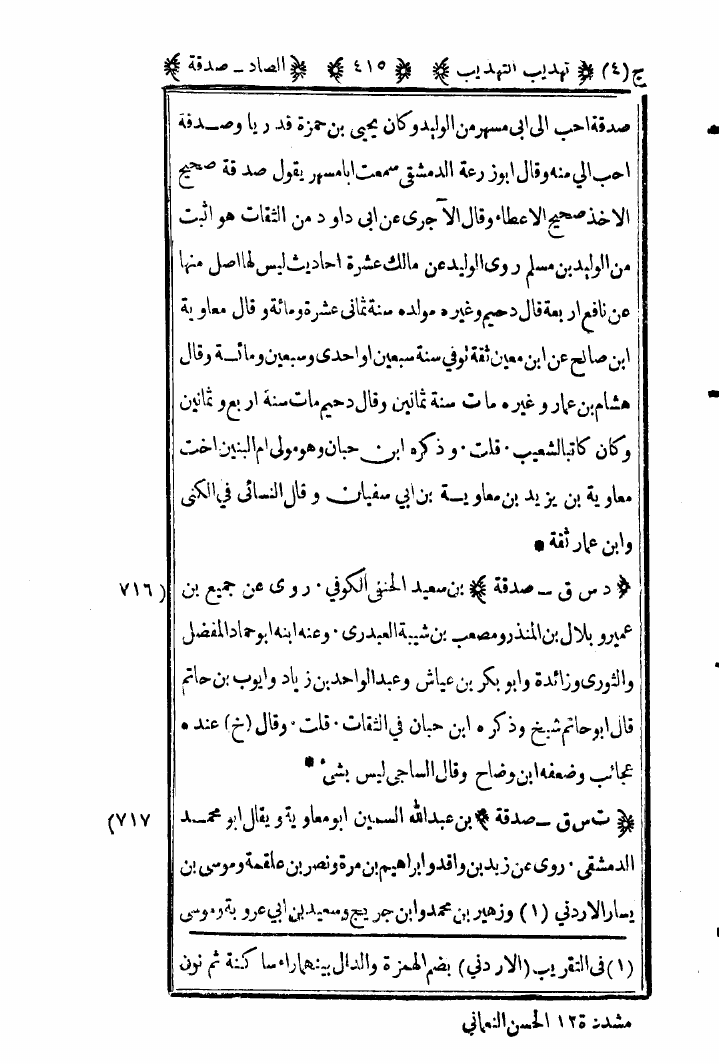 ج (٤) ﴿ تهذيب التهذيب ﴾ ﴿ ٤١٥ ﴾ ﴿ الصاد - صدقة ﴾
صدقة احب الى ابى مسهر من الوليد وكان يحيى بن حمزة قدريا وصدقة
احب الي منه وقال ابوزرعة الدمشقى سمعت ابا مسهر يقول صدقة صحيح
الاخذ صحيح الاعطاء وقال الآجرى عن ابى داود من الثقات هو اثبت
من الوليد بن مسلم روى الوليد عن مالك عشرة احاديث ليس لها اصل منها
عن نافع اربعة قال دحيم وغيره مولده سنة ثمانى عشرة ومائة وقال معاوية
ابن صالح عن ابن معين ثقة توفي سنة سبعين او احدى وسبعين ومائة وقال
هشام بن عمار وغيره مات سنة ثمانين وقال دحيم مات سنة اربع وثمانين
وكان كاتبا لشعيب · قلت · وذكره ابن حبان وهو مولى ام البنين اخت
معاوية بن يزيد بن معاوية بن ابي سفيان وقال النسائى في الكنى
وابن عمار ثقة *
﴿ د س ق - صدقة ﴾ بن سعيد الحنفى الكوفي · روى عن جميع بن (٧١٦
عمير و بلال بن المنذر ومصعب بن شيبة العبدرى · وعنه ابنه ابو حماد المفضل
والثورى وزائدة وابو بكر بن عياش وعبد الواحد بن زياد وايوب بن حاتم
قال ابو حاتم شيخ وذكره ابن حبان في الثقات · قلت · وقال (خ) عنده
عجائب وضعفه ابن وضاح وقال الساجى ليس بشئ *
﴿ ت س ق - صدقة ﴾ بن عبدالله السمين ابو معاوية ويقال ابو محمد ٧١٧)
الدمشقى · روى عن زيد بن واقد وابراهيم بن مرة ونصر بن علقمة وموسى بن
يسار الاردني (١) وزهير بن محمد وابن جريج وسعيد بن ابي عروبة وموسى
(١) فى التقريب (الاردني) بضم الهمزة والدال بينهما راء ساكنة ثم نون
مشددة ١٢ الحسن النعماني